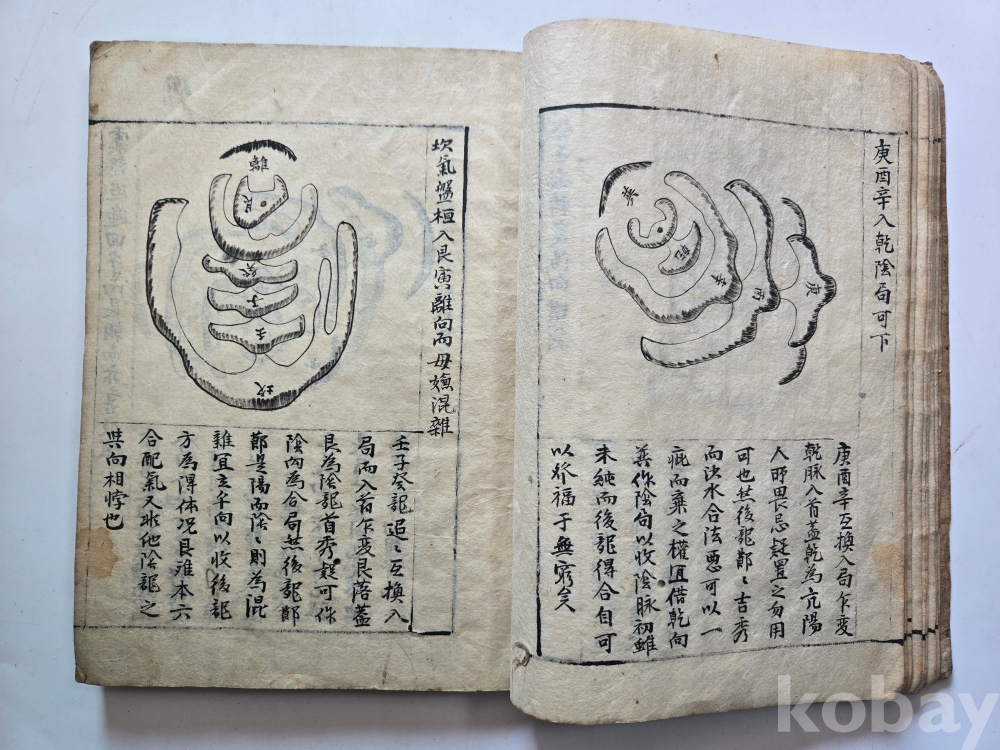 庚酉辛入乾陰局可下
巽
乾
辛
酉
庚
庚酉辛互換入局乍变
乾脉入首盖乾為亢陽
人所畏忌疑置之勿用
可也然後龍節〻吉秀
而决水合法悪可以一
疵而棄之權宜借乾向
巽作陰局以收陰脉初雖
未純而後龍得合自可
以綿福于無窮矣
坎氣盤桓入艮寅離向而毋嫌混雜
離
艮
癸
子
壬
坎
壬子癸龍迢〻互換入
局而入首乍変艮落蓋
艮為陰龍首秀疑可作
陰向為合局然後龍節
節是陽而陰〻則為混
雜宜立午向以收後龍
方為得体况艮雖本六
合配氣又非他陰龍之
與向相悖也
kobay